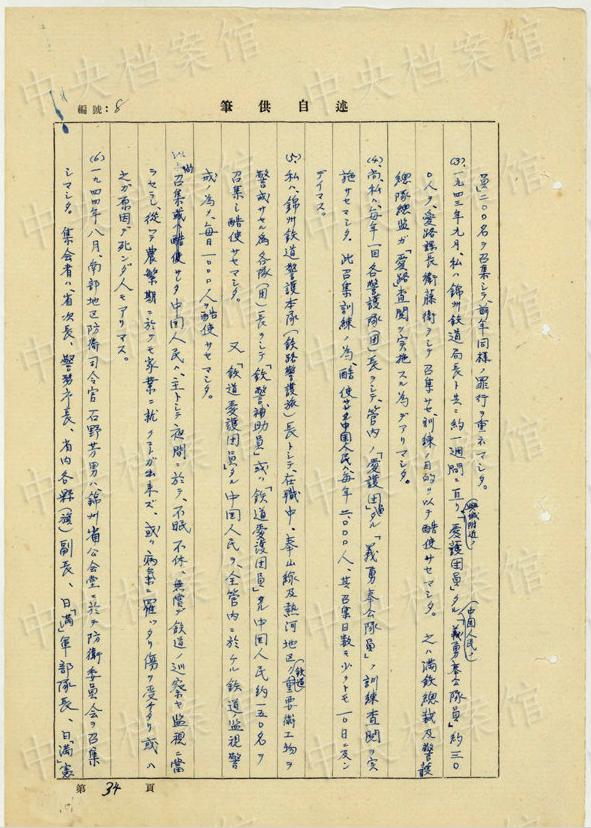 述自供筆
編號：8
員二〇〇名ヲ召集シテ、前年同様ノ罪行ヲ重ネマシタ。
(3) 一九四三年九月、私ハ錦州鉄道局長ト共ニ約一週間ニ亘リ（興城附近ノ）「愛護団員」タル（中国人民ノ）「義勇奉公隊員」約三〇
〇人ヲ、愛路課長衛藤衛ヲシテ召集サセ、訓練ノ目的ヲ以テ酷使サセマシタ。之ハ満鉄總裁及警護
總隊總監ガ「愛路査閲」ヲ実施スル為デアリマシタ。
(4) 尚、私ハ、毎年一回各警護隊（団）長ヲシテ、管内ノ「愛護団員」タル「義勇奉公隊員」ノ訓練査閲ヲ実
施サセマシタ。此召集訓練ノ為、酷使サセタ中国人民ハ毎年二〇〇〇人、其召集日数ハ少クトモ一〇日ニ及ン
デイマス。
(5) 私ハ、錦州鉄道警護本隊（鉄路警護旅）長トシテ、在職中、奉山線及熱河地区ノ鉄道重要術工物ヲ
警戒サセル為各隊（団）長ヲシテ「鉄警補助員」或ハ「鉄道愛護団員」タル中国人民約一五〇名ヲ
召集シ酷使サセマシタ。又「鉄道愛護団員」タル中国人民ヲ、全管内ニ於ケル鉄道監視警
戒ノ為メ、毎日一〇〇〇人ヲ酷使サセマシタ。
召集或ハ酷使サレタ中国人民ハ、主トシテ夜間ニ於テ、不眠不休、無償デ鉄道ノ巡察ヤ監視ニ當
ラセラレ、從ツテ農繁期ニ於テモ家業ニ就クコトガ出来ズ、或ハ病気ニ罹ツタリ傷ヲ受ケタリ或ハ
之ガ原因デ死ンダ人モアリマス。
(6) 一九四四年八月、南部地区防衛司令官石野芳男ハ、錦州省公会堂ニ於テ防衛委員会ヲ召集
シマシタ。集会者ハ、省次長、警務庁長、省内各縣（旗）副長、日「満」軍部隊長、日「満」憲
第34頁
中央档案馆